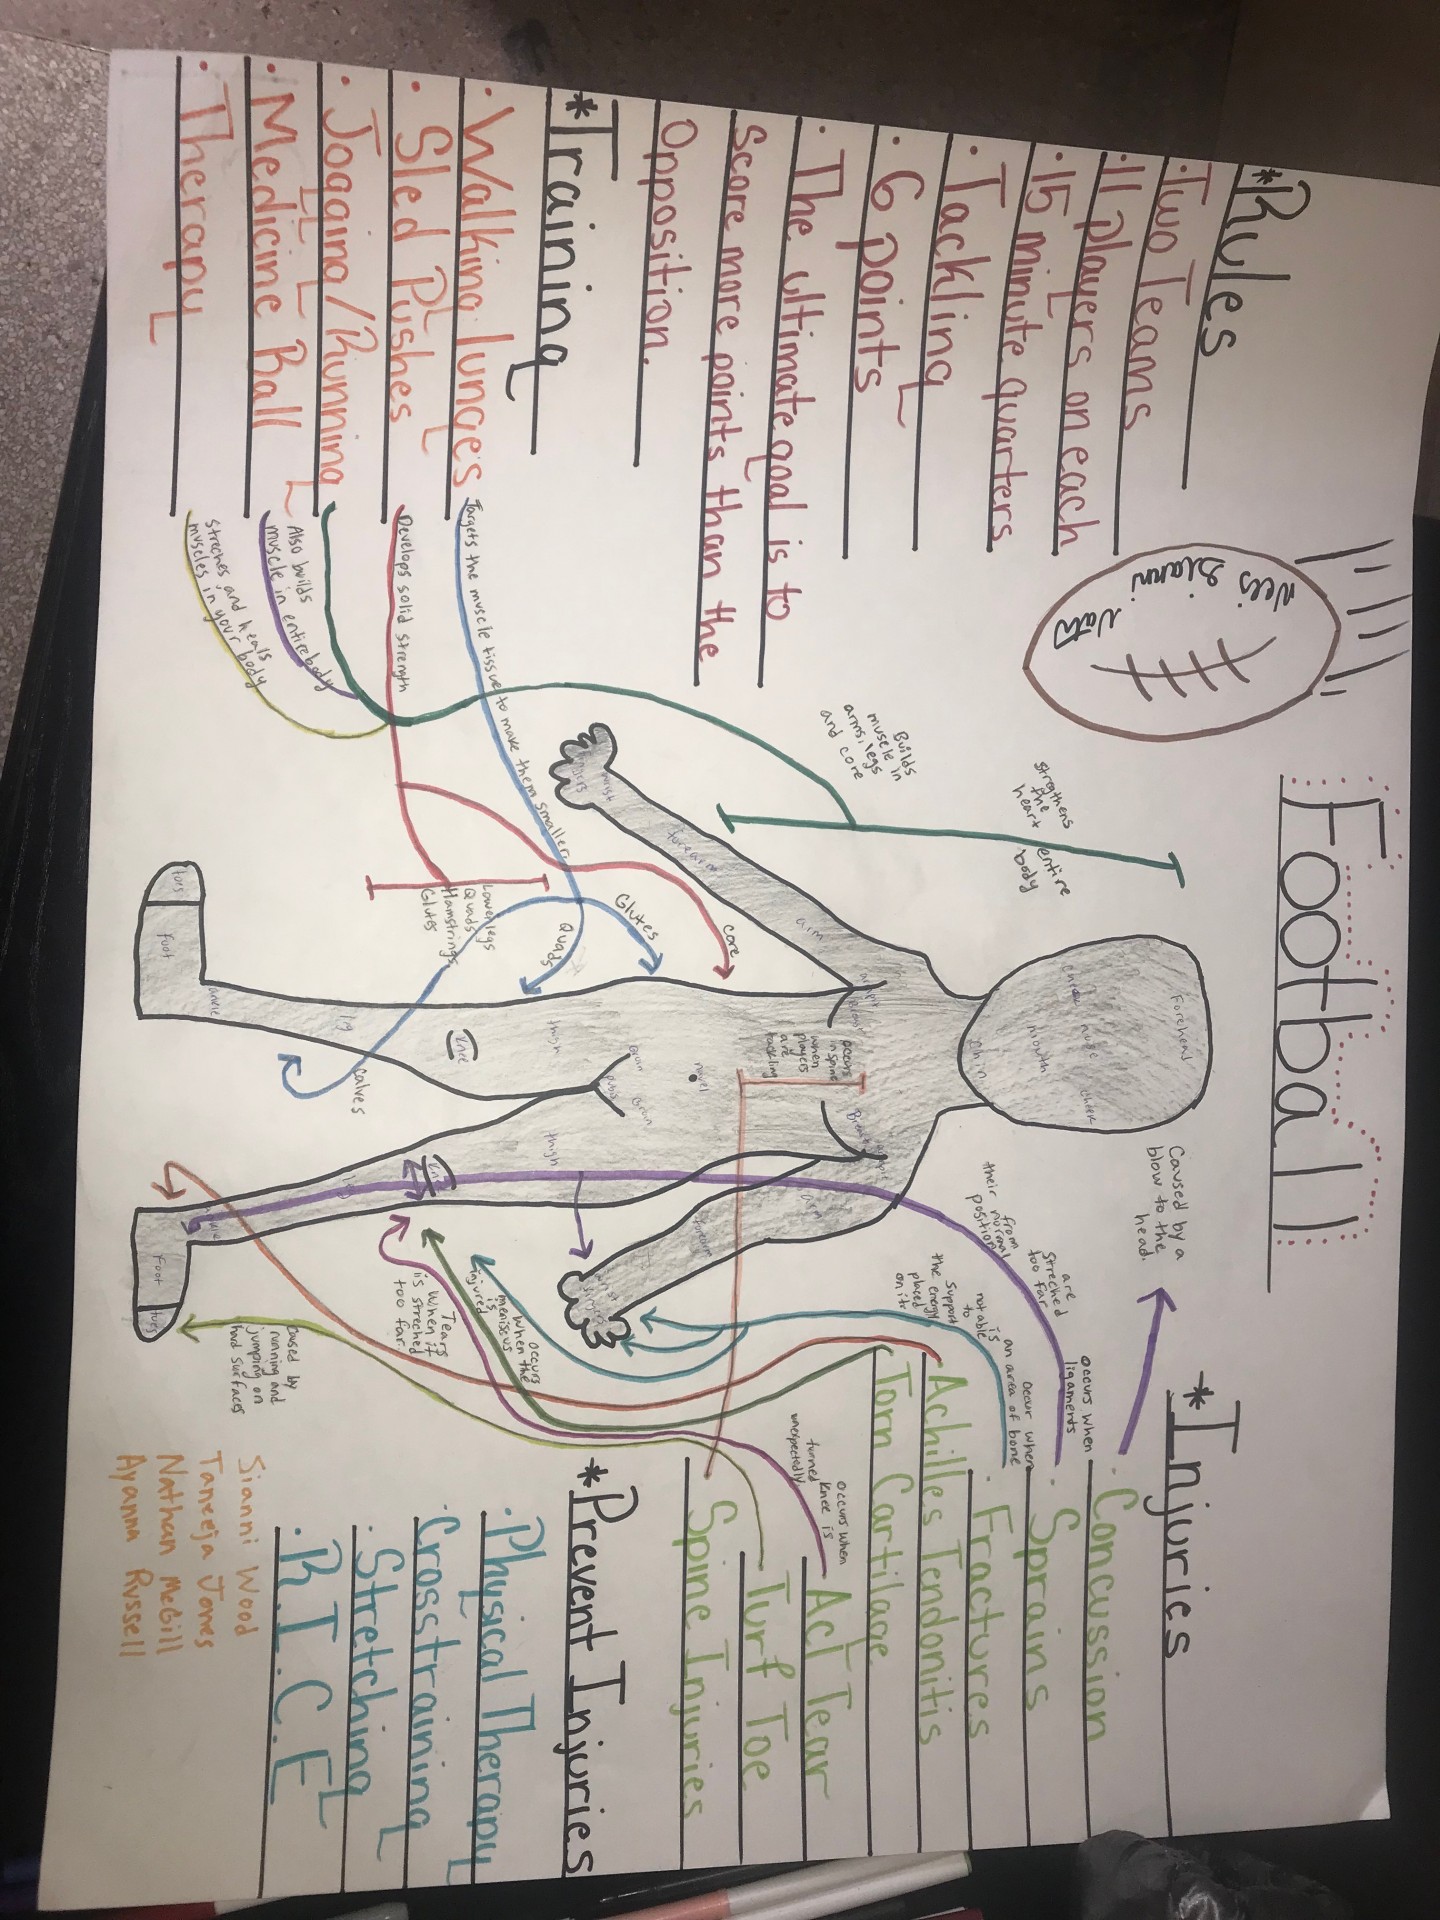 Football
*Rules
·Two Teams
·11 players on each
·15 minute quarters
·Tackling
·6 points
·The ultimate goal is to
score more points than the
opposition.
*Training
·Walking lunges
·Sled Pushes
·Jogging/Running
·Medicine Ball
·Therapy
Targets the muscle tissue to make them smaller.
Develops solid strength
Also builds
muscle in entire body
streches and heals
muscles in your body
Builds
muscle in
arms, legs
and core
strengthens
the
heart
entire
body
Glutes
Quads
core
Lower legs
Quads
Hamstrings
Glutes
calves
Forehead
nose
cheek
mouth
chin
arm
forearm
wrist
occurs
in spine
when
players
are
tackling
navel
groin
pubis
groin
thigh
thigh
knee
knee
leg
leg
ankle
ankle
foot
foot
toes
toes
arm
forearm
wrist
*Injuries
·Concussion
·Sprains
·Fractures
Achilles Tendonitis
Torn Cartilage
Acl Tear
Turf Toe
Spine Injuries
Caused by a
blow to the
head.
occurs when
ligaments
are
streched
too far
from
their normal
position
occur when
an area of bone
is
not able
to
support
the energy
placed
on it
occurs when
knee is
turned
unexpectedly
occurs
when the
meniscus
is
injured
Tears
when it
is streched
too far.
caused by
running and
jumping on
hard surfaces
*Prevent Injuries
·Physical Therapy
·Crosstraining
·Stretching
·R.I.C.E
Sianni Wood
Taneeja Jones
Nathan McGill
Ayanna Russell